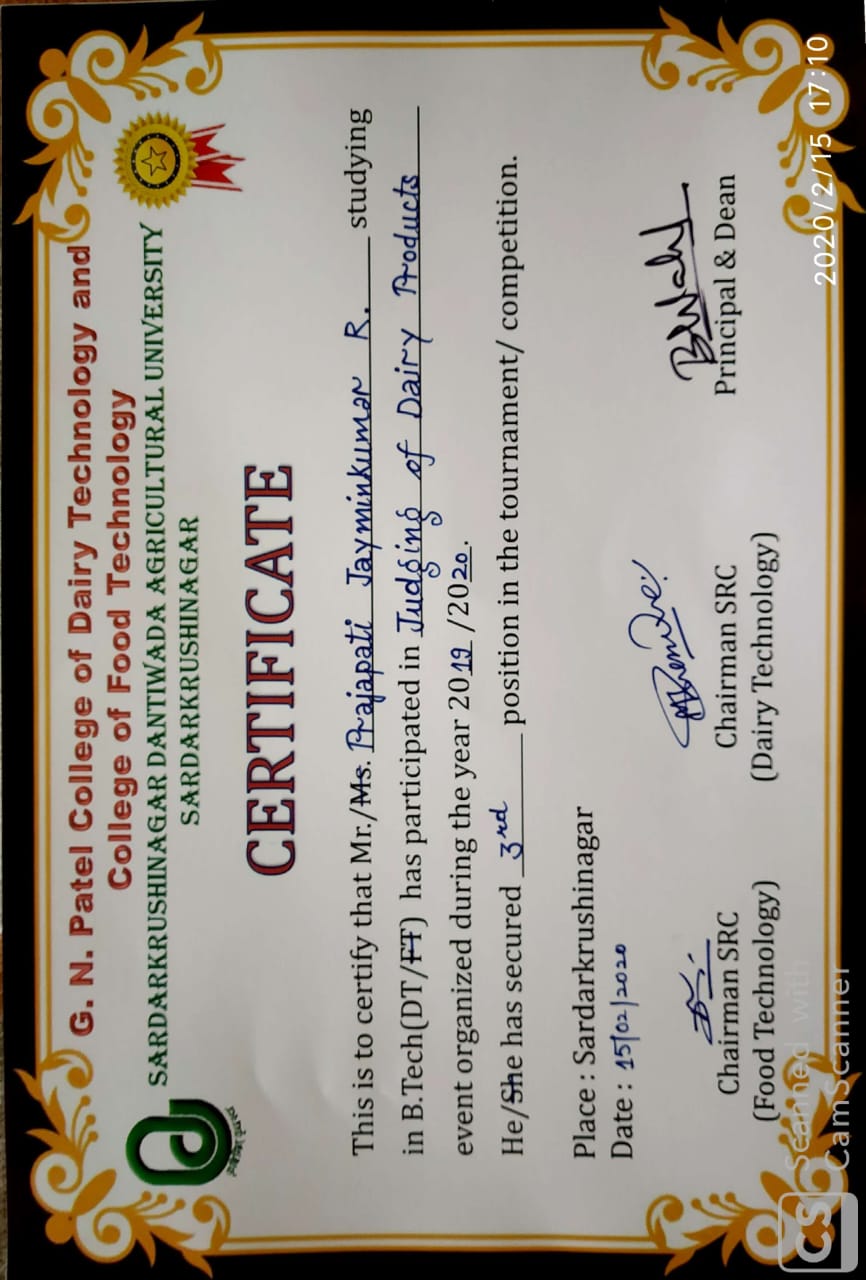 G. N. Patel College of Dairy Technology and
College of Food Technology
SARDARKRUSHINAGAR DANTIWADA AGRICULTURAL UNIVERSITY
SARDARKRUSHINAGAR
CERTIFICATE
This is to certify that Mr./Ms. Prajapati Jayminkumar R. studying
in B.Tech(DT/FT) has participated in Judging of Dairy Products
event organized during the year 2019/2020.
He/She has secured 3rd position in the tournament/ competition.
Place : Sardarkrushinagar
Date : 15/02/2020
Chairman SRC
(Food Technology)
Chairman SRC
(Dairy Technology)
Principal & Dean
2020/2/15 17:10
CS Scanned with
CamScanner